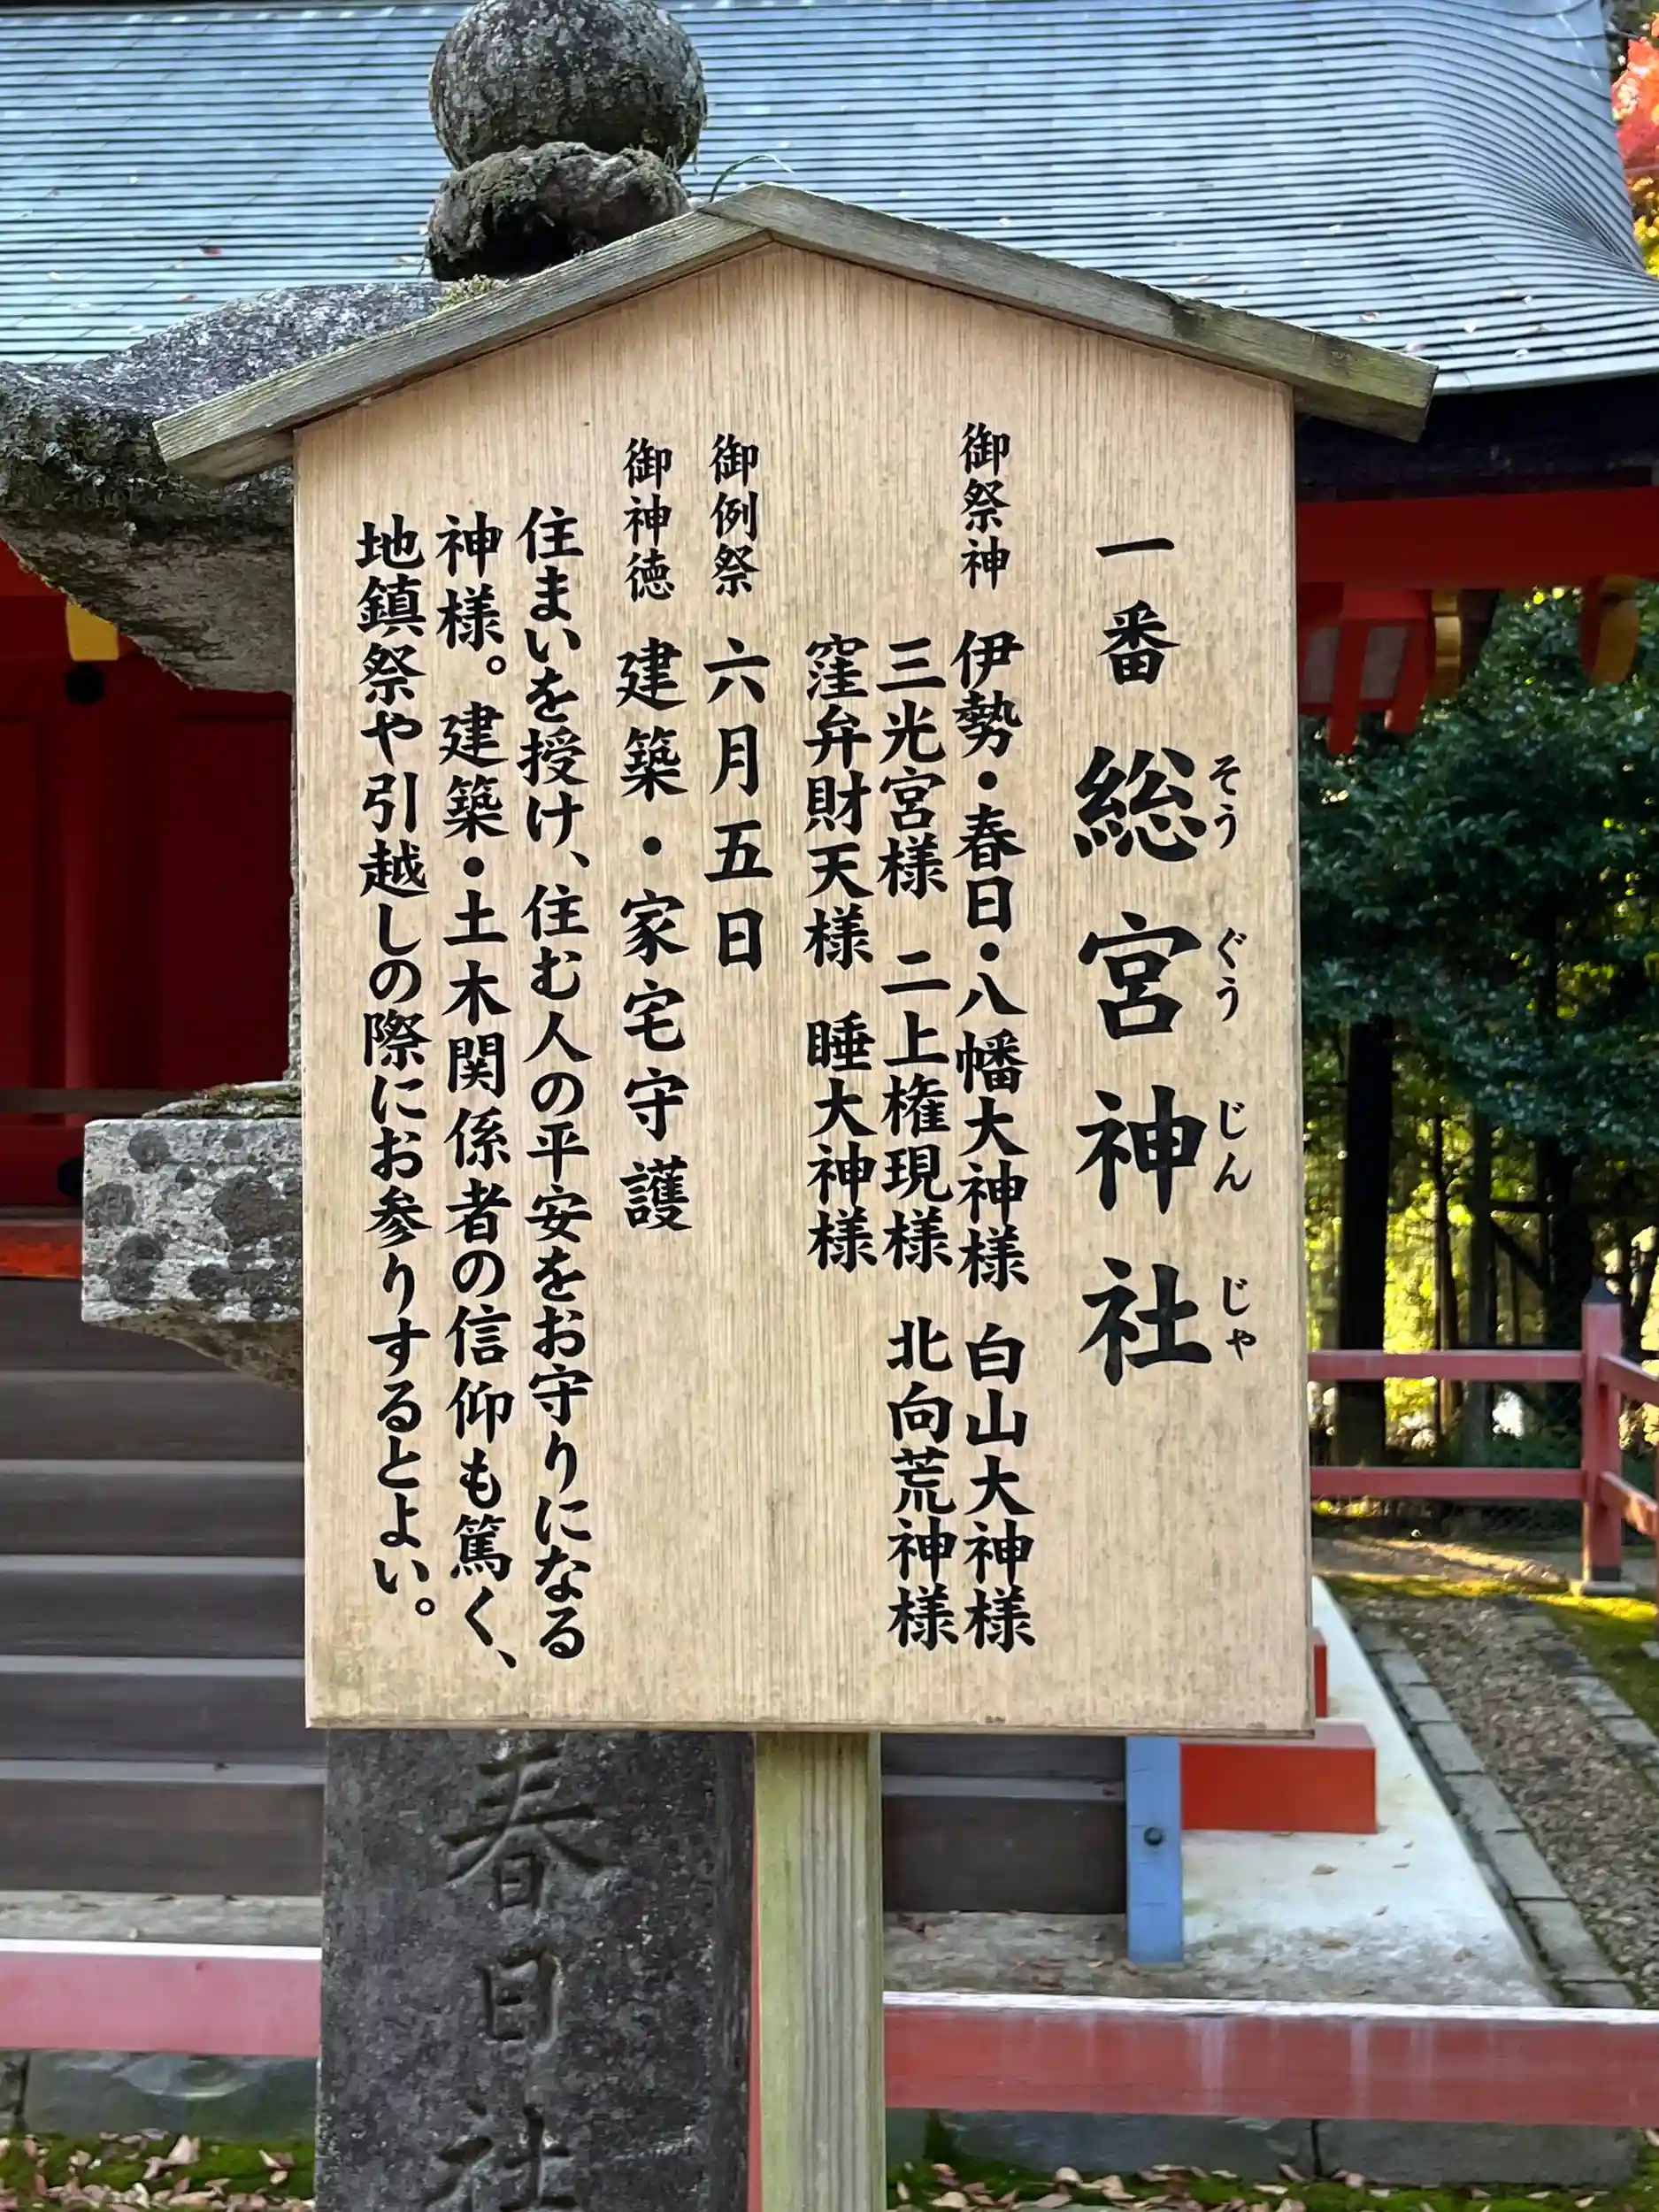 一番 総宮神社
そうぐうじんじゃ
御祭神 伊勢・春日・八幡大神様 白山大神様
三光宮様 二上権現様 北向荒神様
窪弁財天様 睡大神様
御例祭 六月五日
御神徳 建築・家宅守護
住まいを授け、住む人の平安をお守りになる
神様。建築・土木関係者の信仰も篤く、
地鎮祭や引越しの際にお参りするとよい。
春日社